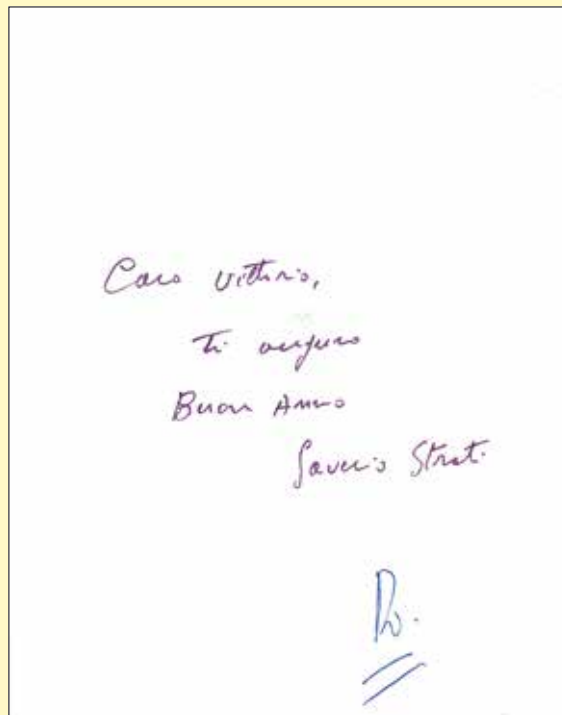 Caro Vittorio,
ti auguro
Buon Anno
Saverio Strati